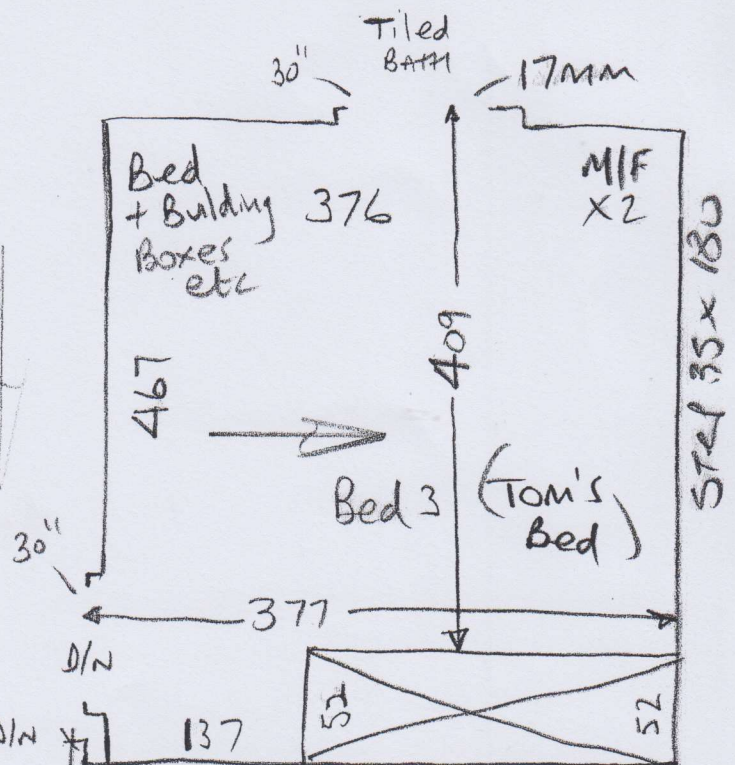 Tiled
BATH
30"
17mm
Bed
+ Building
Boxes
etc
376
M/F
X2
Step 35 x 180
467
409
Bed 3
(Tom's
Bed)
30"
377
D/N
52
52
D/N
137